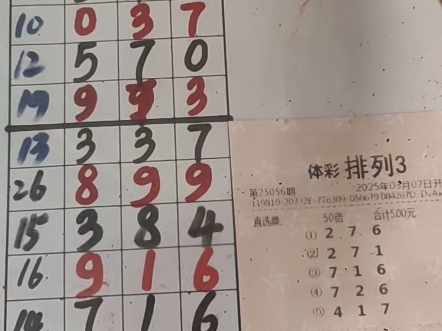 10 0 3 7
12 5 7 0
19 9 9 3
13 3 3 7
26 8 9 9
15 3 8 4
16 9 1 6
14 7 1 6
体彩 排列3
第25056期 2025年03月07日开
直选票 50倍 合计500元
① 2 7 6
② 2 7 1
③ 7 1 6
④ 7 2 6
⑤ 4 1 7